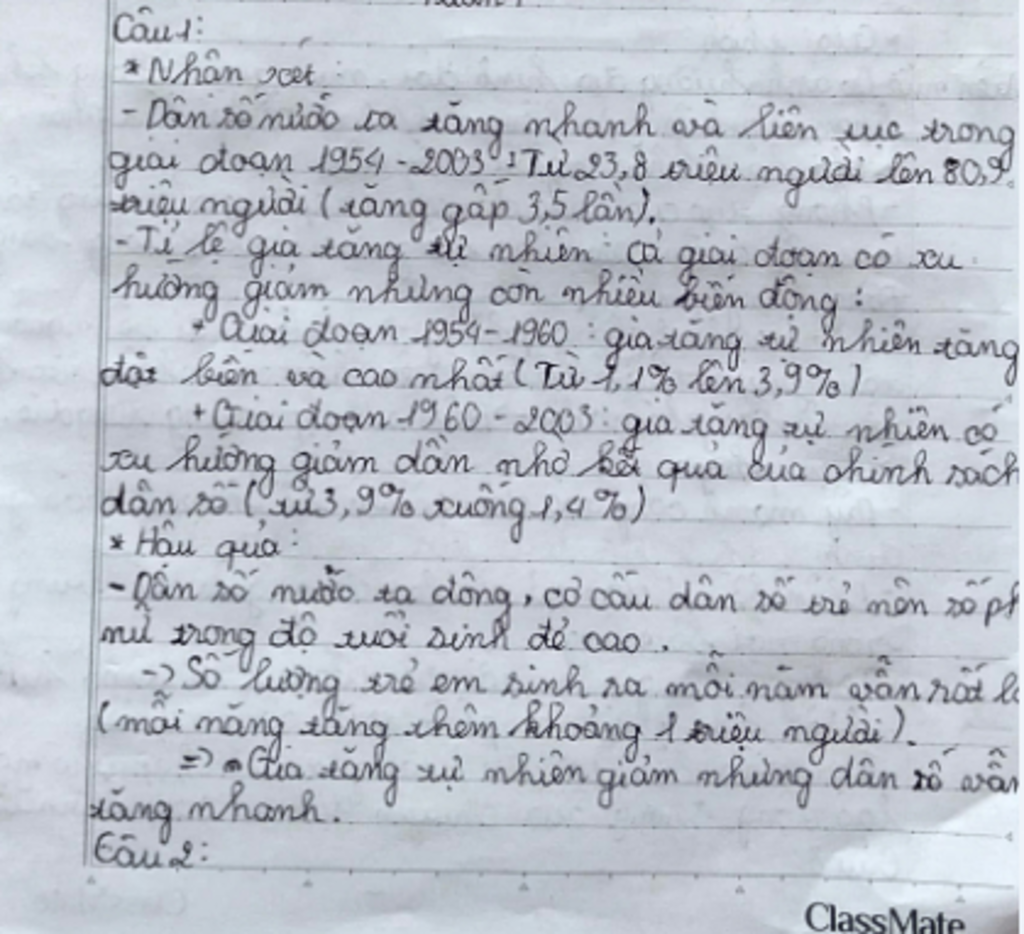 Câu 1:
* Nhận xét:
- Dân số nước ta tăng nhanh và liên tục trong
giai đoạn 1954 - 2003: Từ 23,8 triệu người lên 80,9
triệu người (tăng gấp 3,5 lần).
- Tỉ lệ gia tăng tự nhiên: Cả giai đoạn có xu
hướng giảm nhưng còn nhiều biến động:
+ Giai đoạn 1954 - 1960: gia tăng tự nhiên tăng
đột biến và cao nhất (Từ 1,1% lên 3,9%)
+ Giai đoạn 1960 - 2003: gia tăng tự nhiên có
xu hướng giảm dần nhờ kết quả của chính sách
dân số (từ 3,9% xuống 1,4%)
* Hậu quả:
- Dân số nước ta đông, cơ cấu dân số trẻ nên số ph
nữ trong độ tuổi sinh đẻ cao.
-> Số lượng trẻ em sinh ra mỗi năm vẫn rất l
(mỗi năng tăng thêm khoảng 1 triệu người).
=> Gia tăng tự nhiên giảm nhưng dân số vẫn
tăng nhanh.
Câu 2:
ClassMate